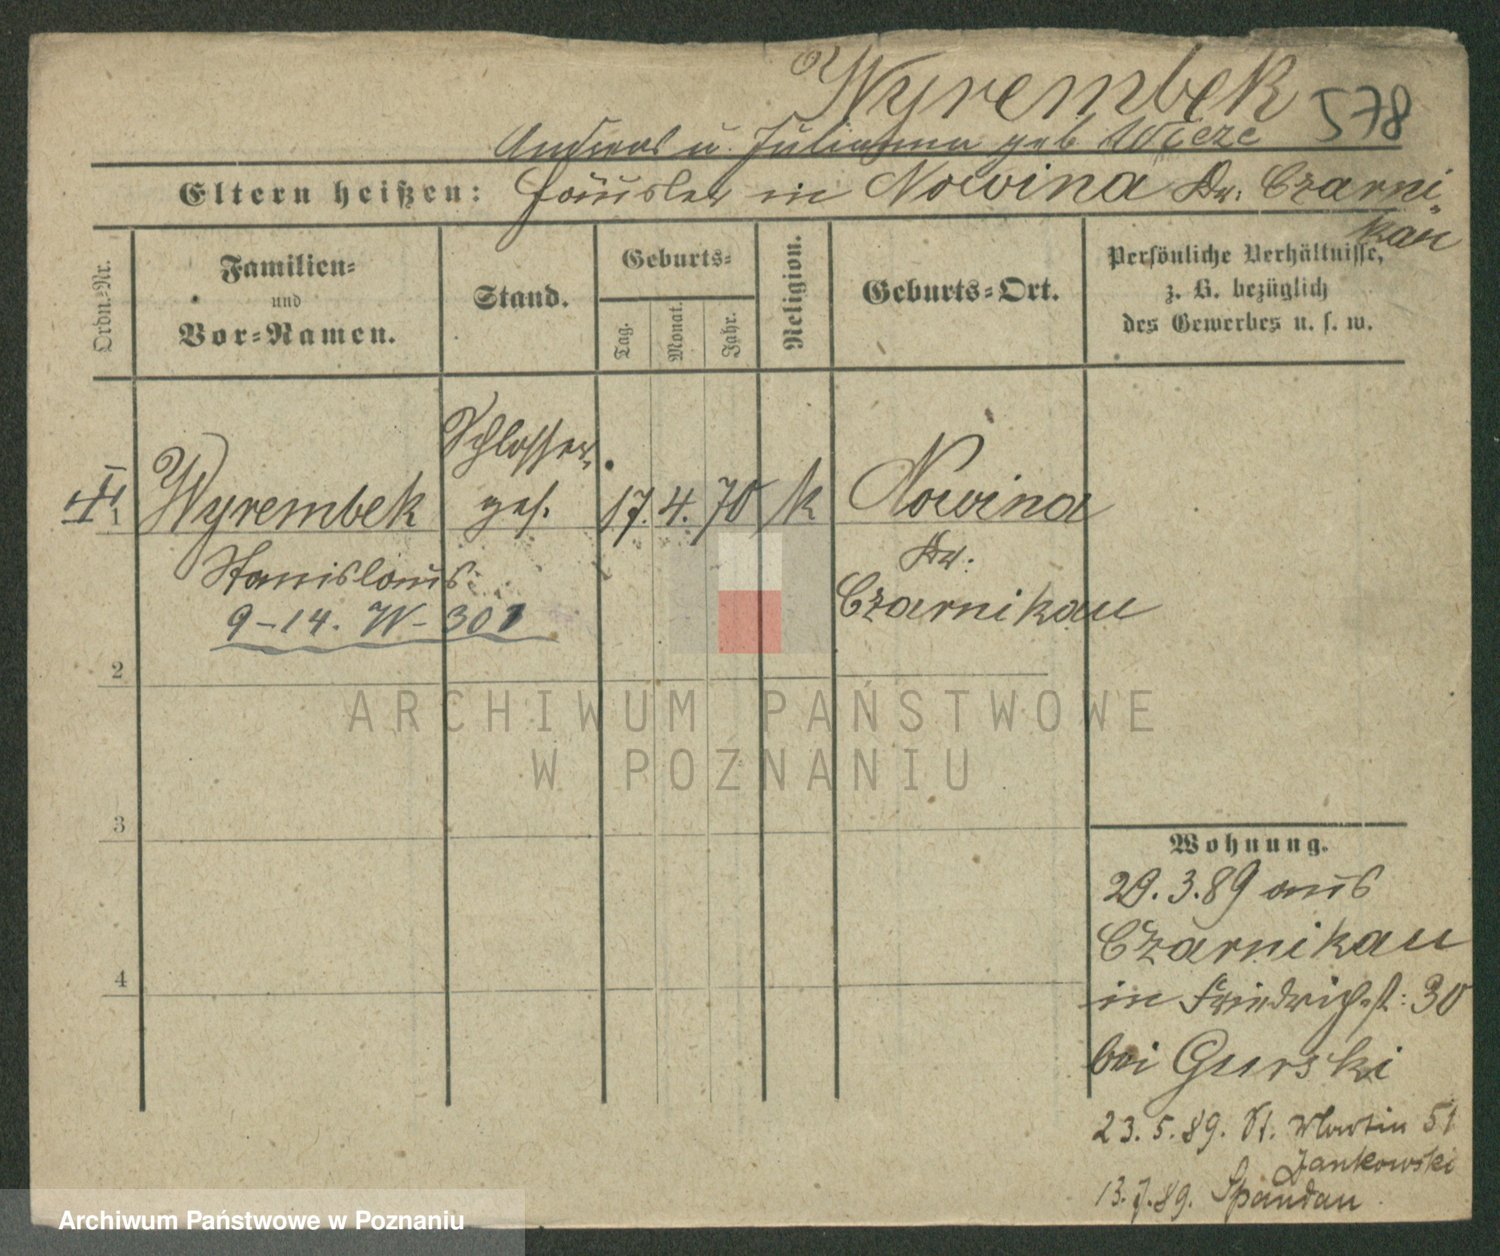 Wyrembek 578
Andreas u. Julianna geb.
Eltern heißen: Häusler in Nowina Kr. Czarni-
kau
Ordn.-Nr.
Familien-
und
Vor-Namen.
Stand.
Geburts-
Tag.
Monat.
Jahr.
Religion.
Geburts-Ort.
Persönliche Verhältnisse,
z. B. bezüglich
des Gewerbes u. s. w.
Schlosser
1 Wyrembek ges. 17. 4. 70 k Nowina
Stanislaus Kr.
9-14. W-301 Czarnikau
2
3
4
Wohnung.
29.3.89 aus
Czarnikau
in Friedrichst: 30
bei Gurski
23.5.89. St. Martin 51
Jankowski
13.7.89. Spandau
ARCHIWUM PAŃSTWOWE
W POZNANIU
Archiwum Państwowe w Poznaniu